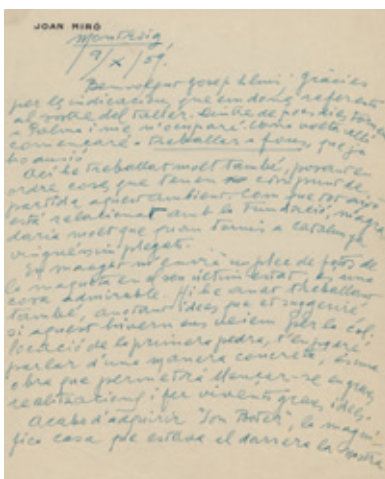 JOAN MIRÓ
Montroig,
9/X/59.
Benvolgut Josep Lluís: gràcies
per les indicacions que em dóna, referents
al sostre del taller. Dentre de pocs dies torno
a Palma i me n'ocuparé. Com a volta allí
començaré a treballar a fons, que ja
ho ansio.
Ací he treballat molt també, posant en
ordre coses que tenen com punt de
partida aquest ambient. Com que tot això
està relacionat amb la Fundació, m'agra
daria molt que quan torni a Catalunya
vinguéssim plegats.
En Maeght m'envià un plec de fotos de
la maqueta en el seu últim estat, és una
cosa admirable. Hi he anat treballant
també, anotant idees que et suggeriré
si aquest hivern ens veiem per la col,
locació de la primera pedra, t'en podré
parlar d'una manera concreta, és una
obra que permetrà llençar-se en grans
realitzacions i fer vivents grans idees.
Acabo d'adquirir "Son Boter", la magní-
fica casa que estava al darrera la nostra,